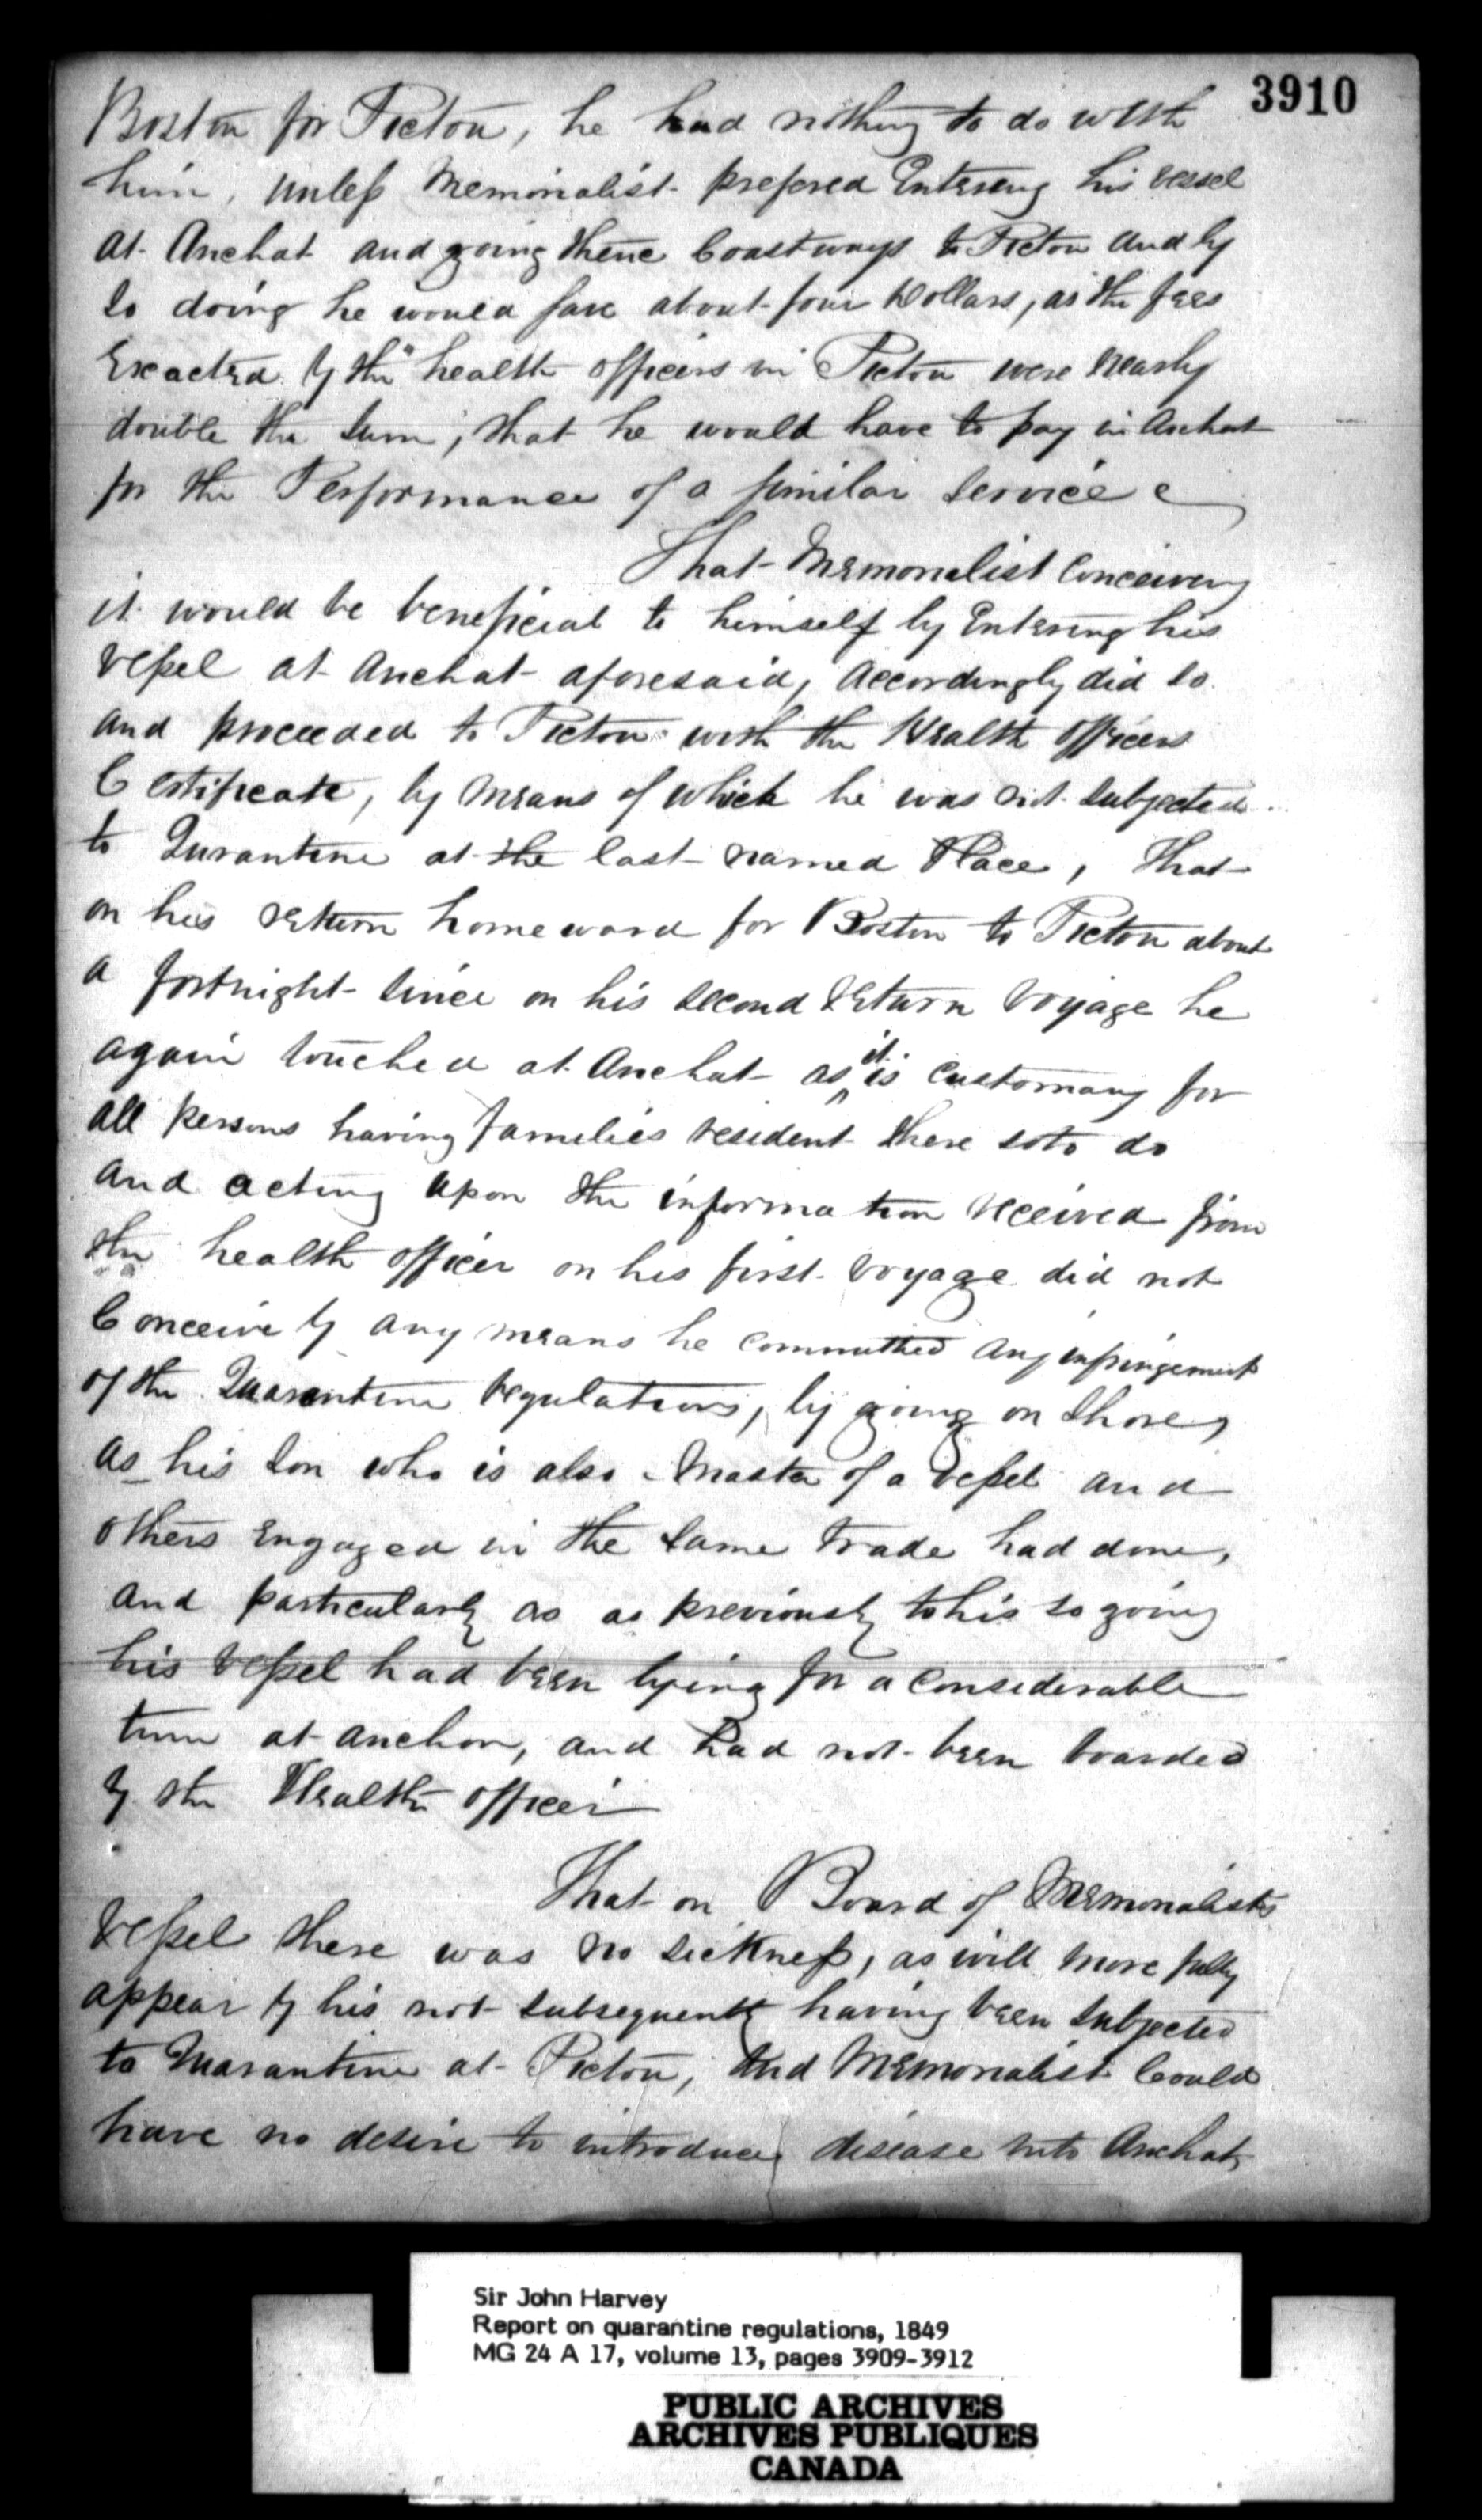 3910
Boston for Pictou, he had nothing to do with
him, unless Memorialist prefered Entering his vessel
at Arichat and going thenc Coastways to Pictou and by
so doing he would save about four Dollars, as the fees
Exacted by the health officers in Pictou were nearly
double the Sum, that he would have to pay in Arichat
for the Performance of a similar Service
That Memorialist Conceiving
it would be beneficial to himself by Entering his
Vessel at Arichat aforesaid, accordingly did so
and proceeded to Pictou with the Health officers
Certificate, by means of which he was not subjected
to Qurantine at the last named Place, That
on his return homeward for Boston to Pictou about
a fortnight since on his second return voyage he
again touched at Arichat as it is customary for
all persons having families resident there so to do
and acting upon the information received from
the health officer on his first voyage did not
Conceive by any means he committed any infringement
of the Quarantine regulations, by going on shore,
as his son who is also Master of a Vessel and
others Engaged in the same trade had done,
and particularly as as previously to his so going
his Vessel had been lying for a considerable
time at anchor, and had not been boarded
by the Health officer
That on Board of Memorialists
Vessel there was no sickness, as will more fully
appear by his not subsequently having been subjected
to Quarantine at Pictou, and Memorialist Could
have no desire to introduce disease into Arichat,
Sir John Harvey
Report on quarantine regulations, 1849
MG 24 A 17, volume 13, pages 3909-3912
PUBLIC ARCHIVES
ARCHIVES PUBLIQUES
CANADA